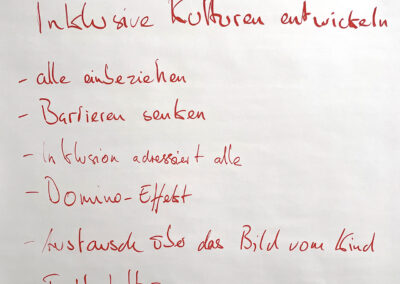 Inklusive Kulturen entwickeln
- alle einbeziehen
- Barrieren senken
- Inklusion adressiert alle
- Domino-Effekt
- Austausch über das Bild vom Kind